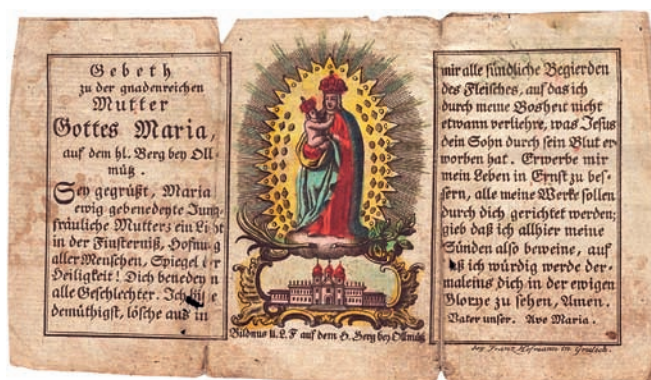 Gebeth
zu der gnadenreichen
Mutter
Gottes Maria,
auf dem hl. Berg bey Oll-
mütz.
Sey gegrüßt, Maria
ewig gebenedeyte Jung-
fräuliche Mutter; ein Licht
in der Finsterniß, Hofnung
aller Menschen, Spiegel der
Heiligkeit! Dich benedeyn
alle Geschlechter. Ich bitte
demüthigst, lösche aus in
Bildnus U. L. F auf dem H. Berg bey Ollmütz
mir alle sündliche Begierden
des Fleisches, auf das ich
durch meine Bosheit nicht
etwann verliehre, was Jesus
dein Sohn durch sein Blut er-
worben hat. Erwerbe mir
mein Leben in Ernst zu bes-
sern, alle meine Werke sollen
durch dich gerichtet werden;
gieb daß ich allhier meine
Sünden also beweine, auf
daß ich würdig werde der-
maleins dich in der ewigen
Glorye zu sehen, Amen.
Vater unser. Ave Maria.
bey Franz Hofmann in Grulich.